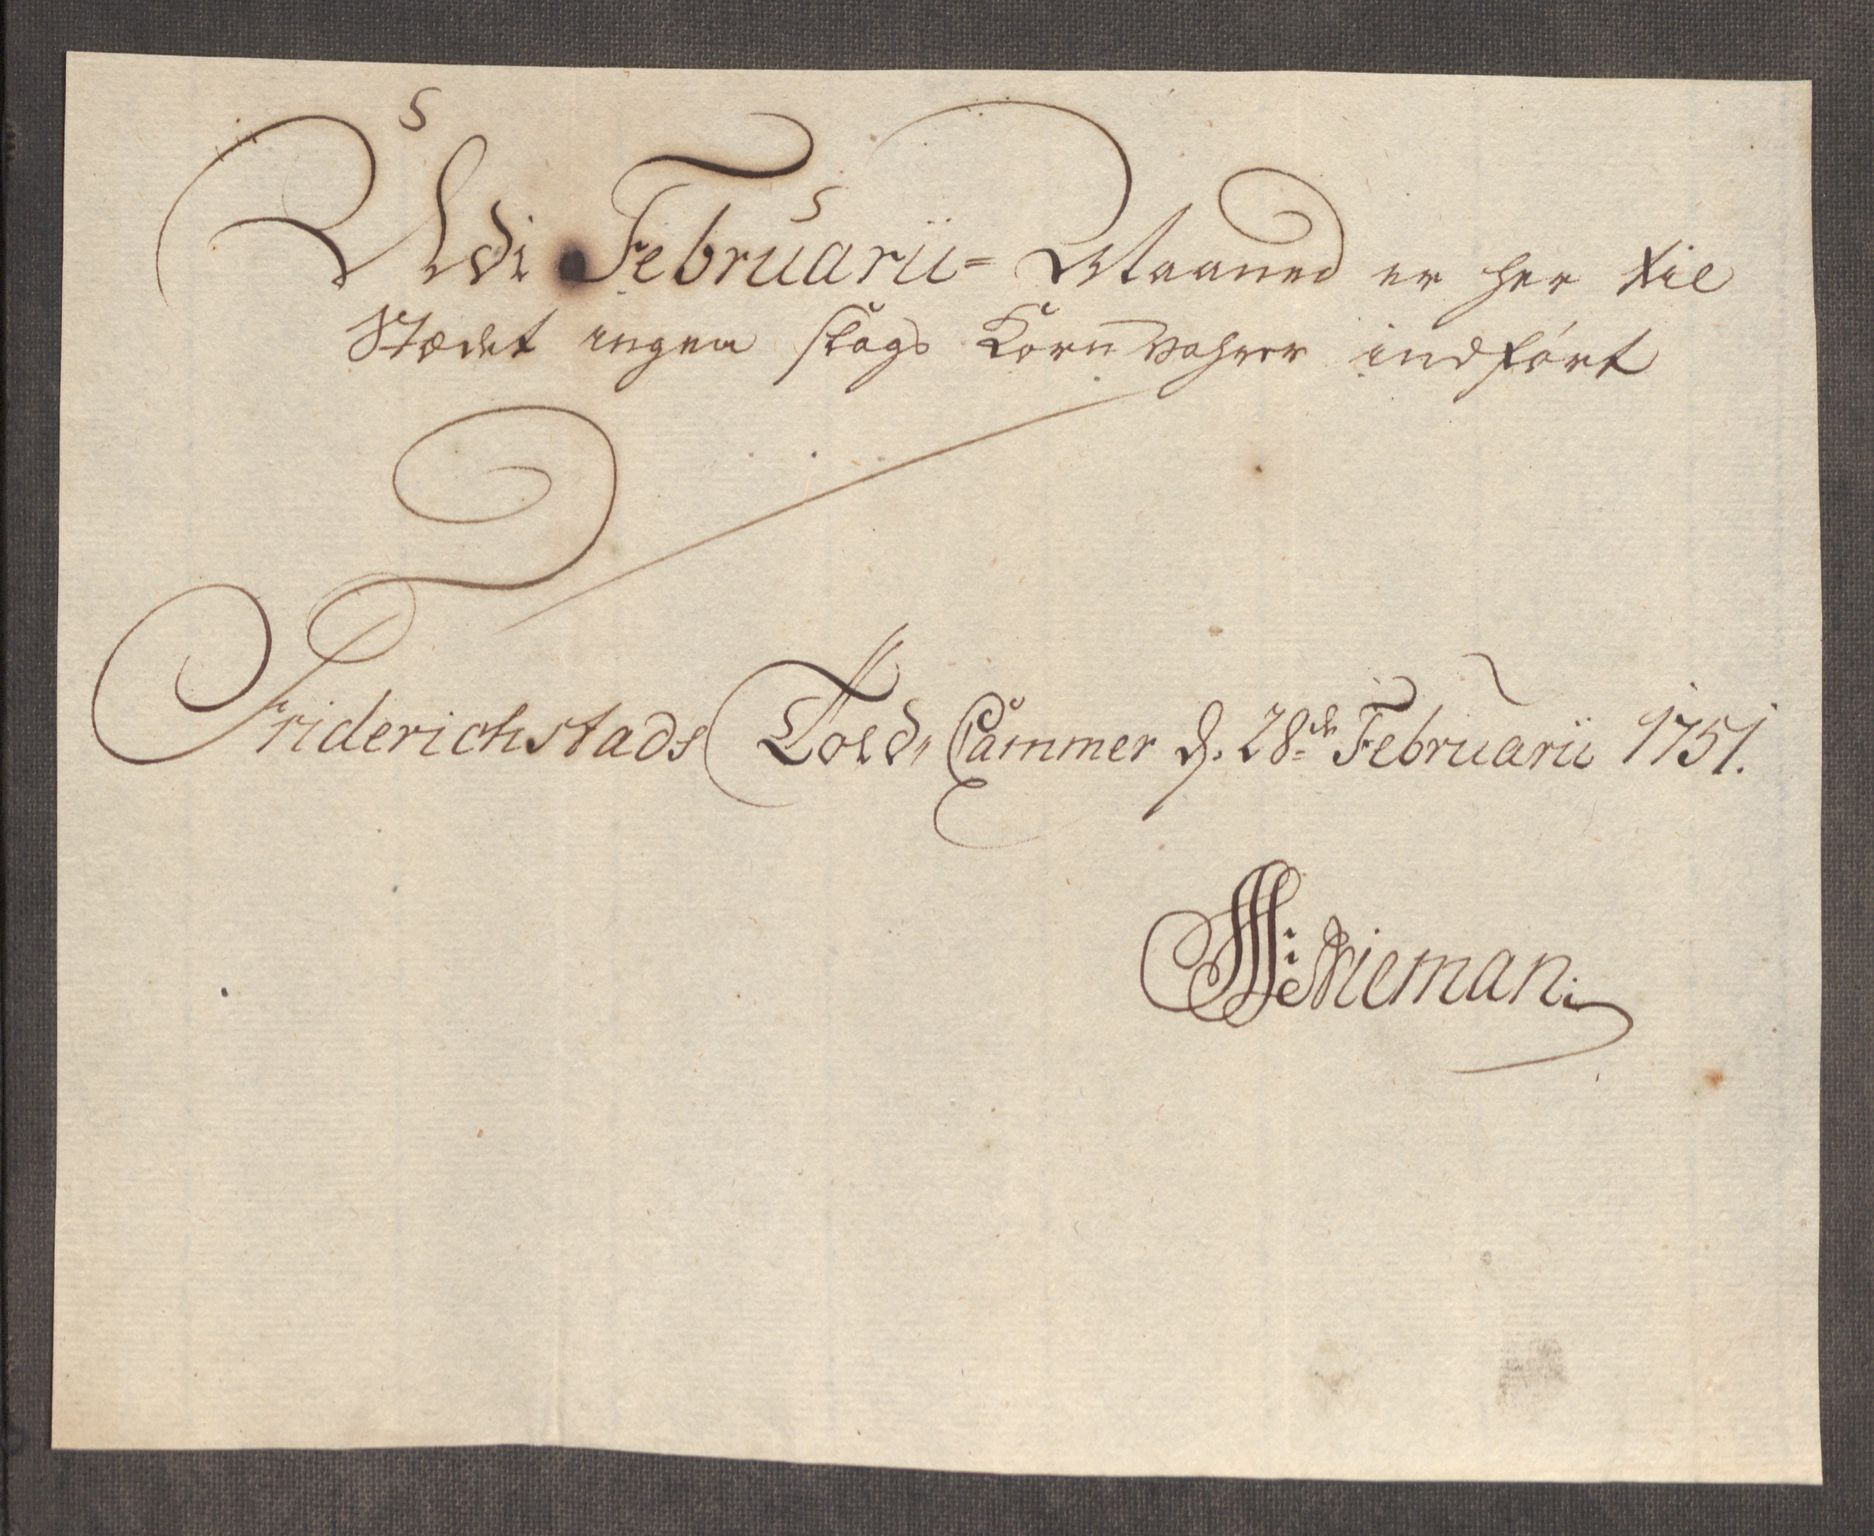 Udi Februarii= Maaned er her til
Stædet ingen slags Korn Vahrer indført
Friderichstads Told, Cammer d. 28de Februarii 1751.
Nieman.